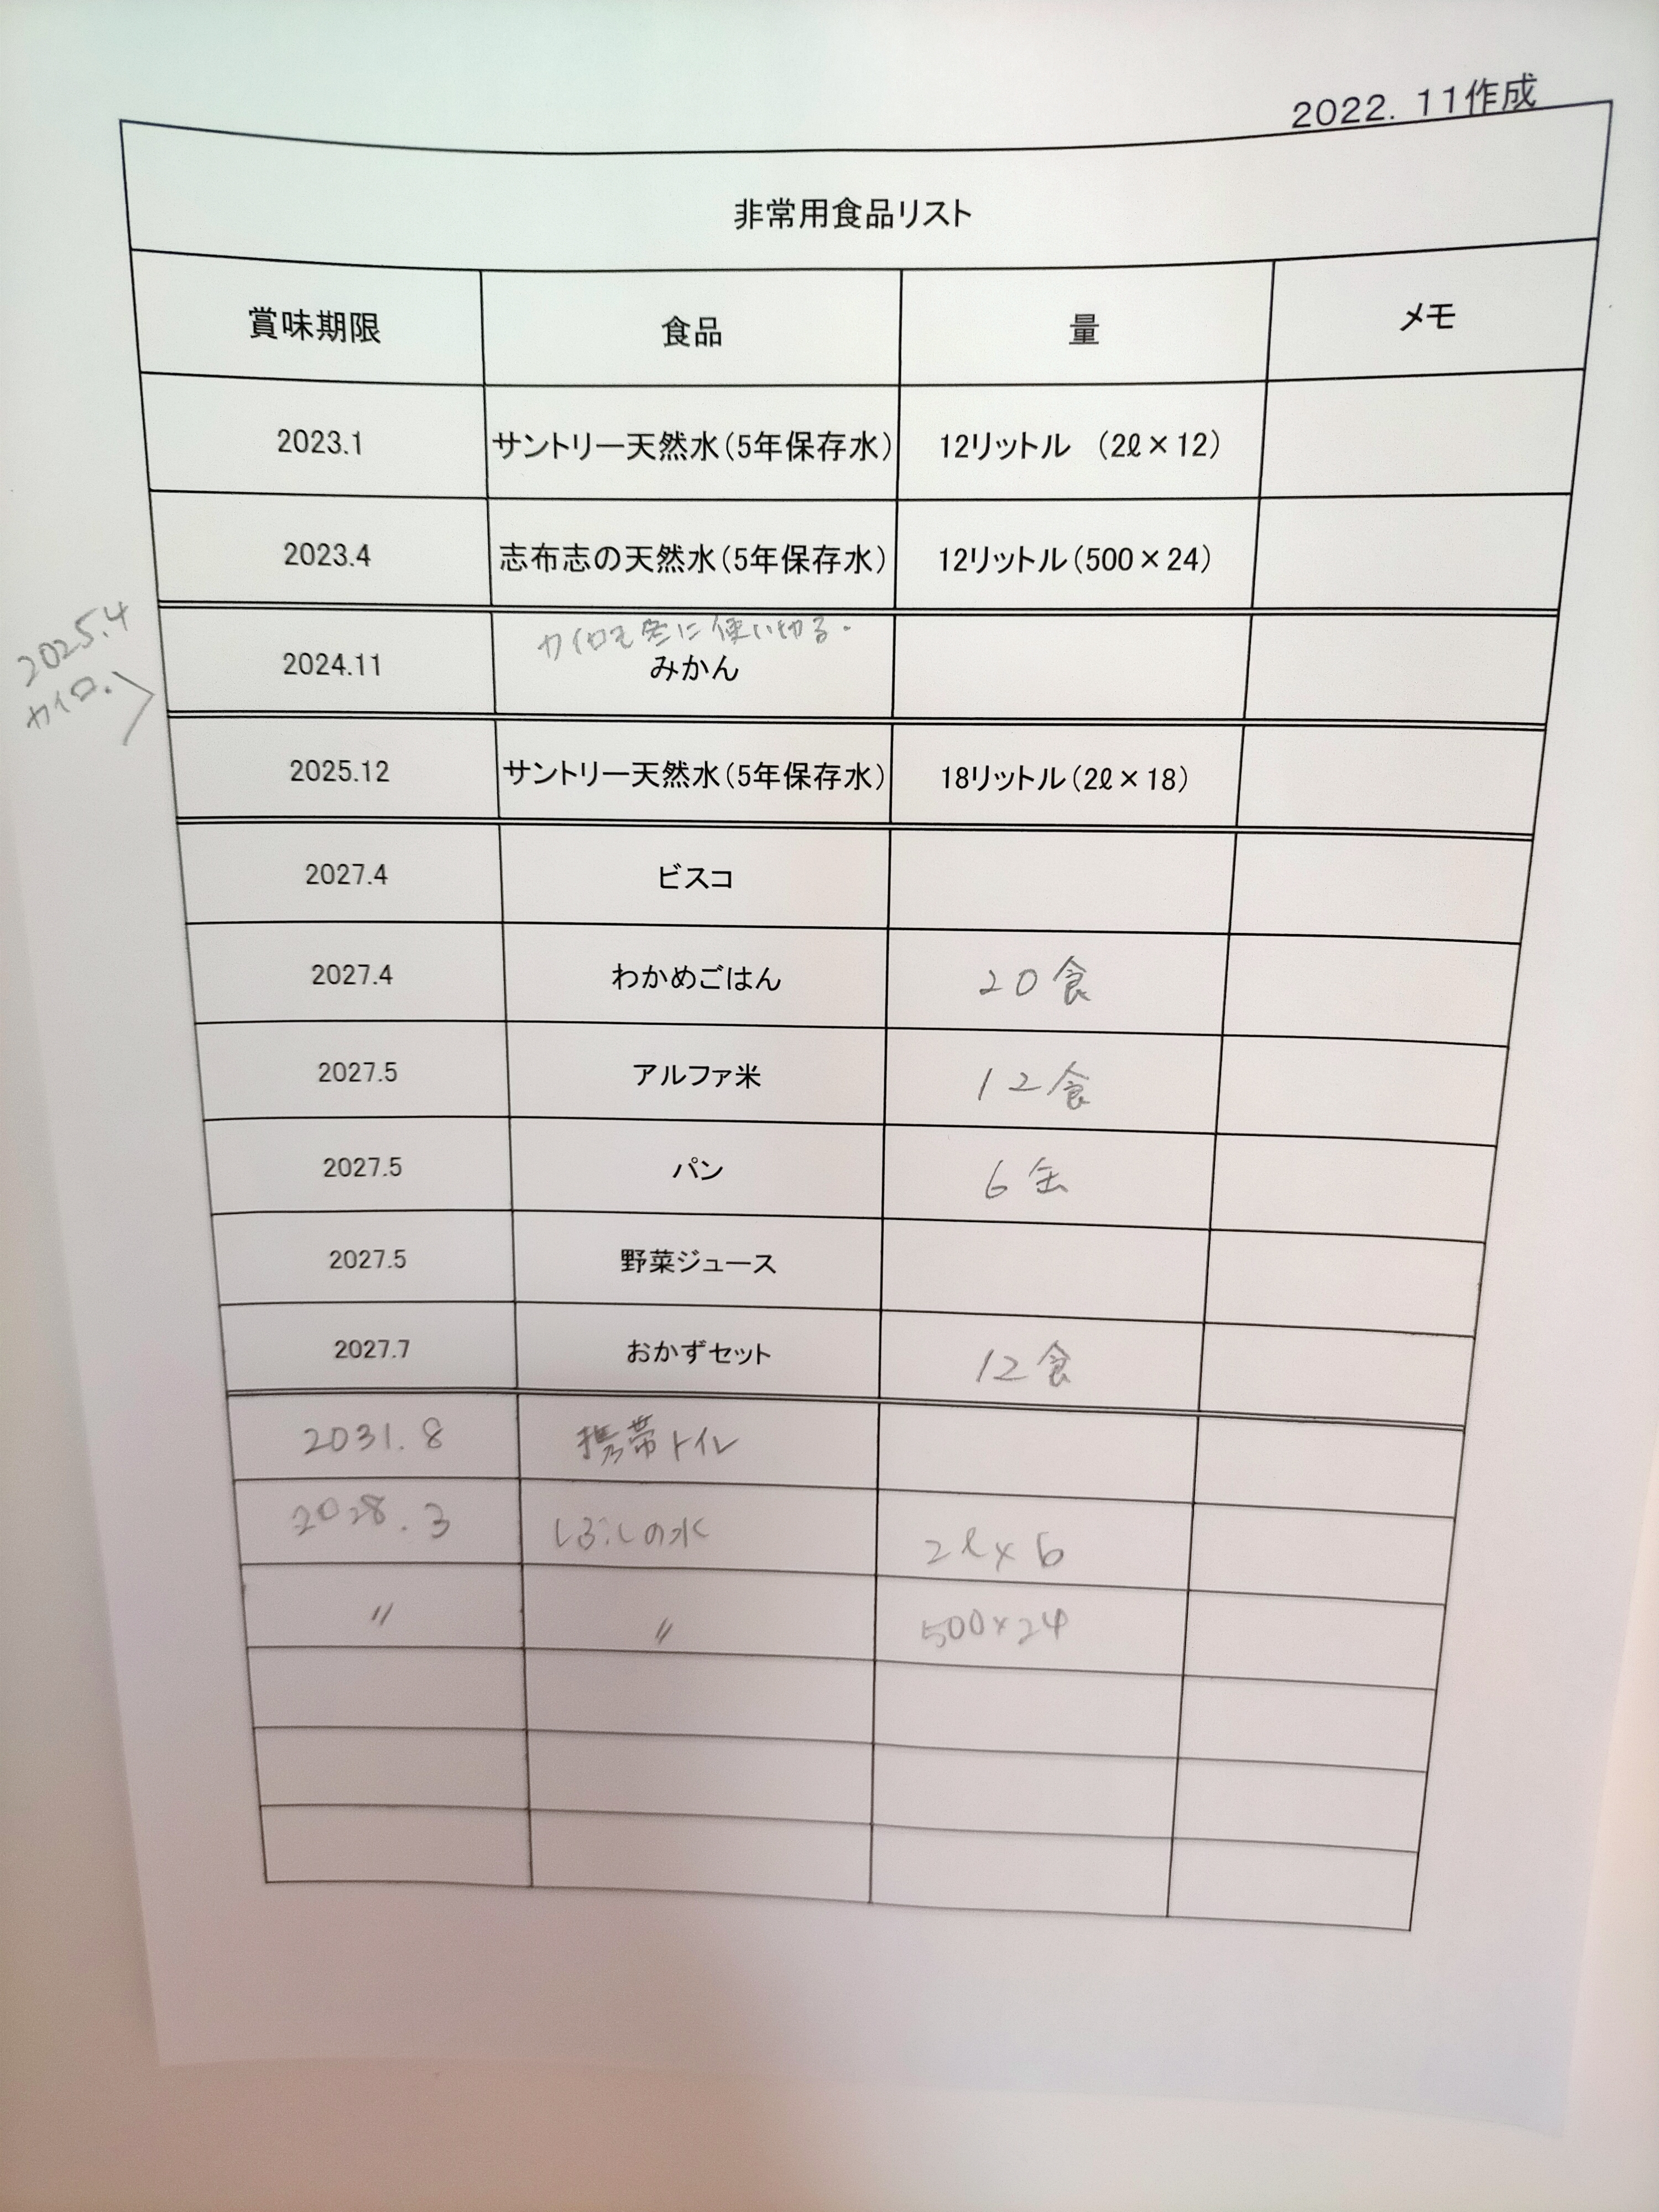 2022. 11作成
非常用食品リスト
賞味期限 食品 量 メモ
2023.1 サントリー天然水(5年保存水) 12リットル (2ℓ×12)
2023.4 志布志の天然水(5年保存水) 12リットル(500×24)
2025.4
カイロ.
カイロも冬に使い切る.
2024.11 みかん
2025.12 サントリー天然水(5年保存水) 18リットル(2ℓ×18)
2027.4 ビスコ
2027.4 わかめごはん 20食
2027.5 アルファ米 12食
2027.5 パン 6缶
2027.5 野菜ジュース
2027.7 おかずセット 12食
2031.8 携帯トイレ
2028.3 しぶしの水 2ℓ×6
〃 〃 500×24